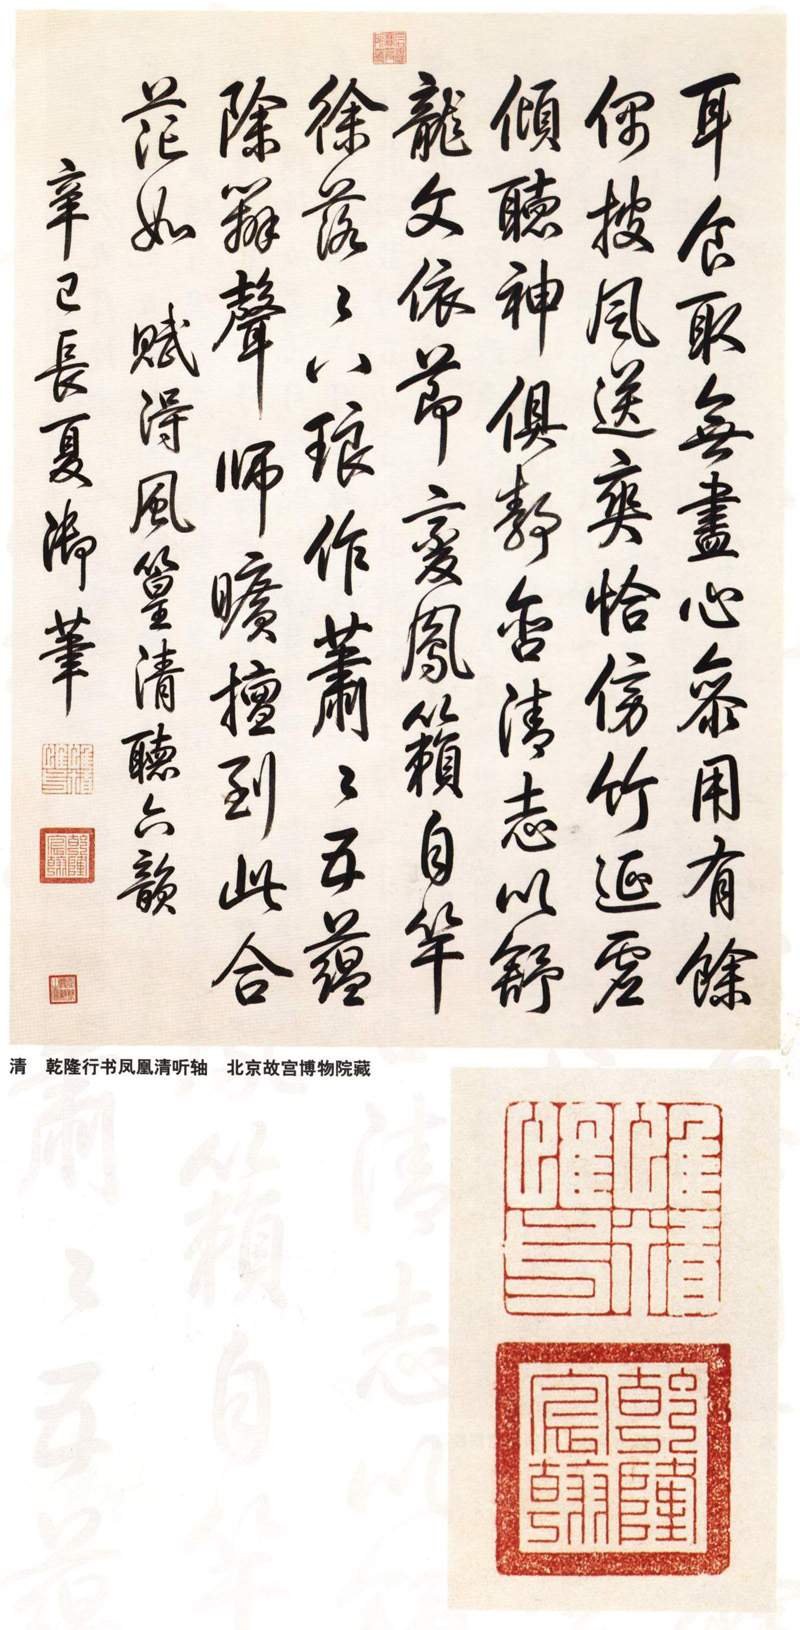 耳食取無盡心叅用有餘
偶披風送爽恰傍竹延虛
傾聽神俱靜含清志以舒
龍文依節變鳳籟自竿
徐落〻八琅作蕭〻五蘊
除辨聲師曠擅到此合
茫如 賦得風篁清聽六韻
辛巳長夏御筆
乾隆宸翰
清 乾隆行书凤凰清听轴 北京故宫博物院藏
惟精
乾隆
宸翰